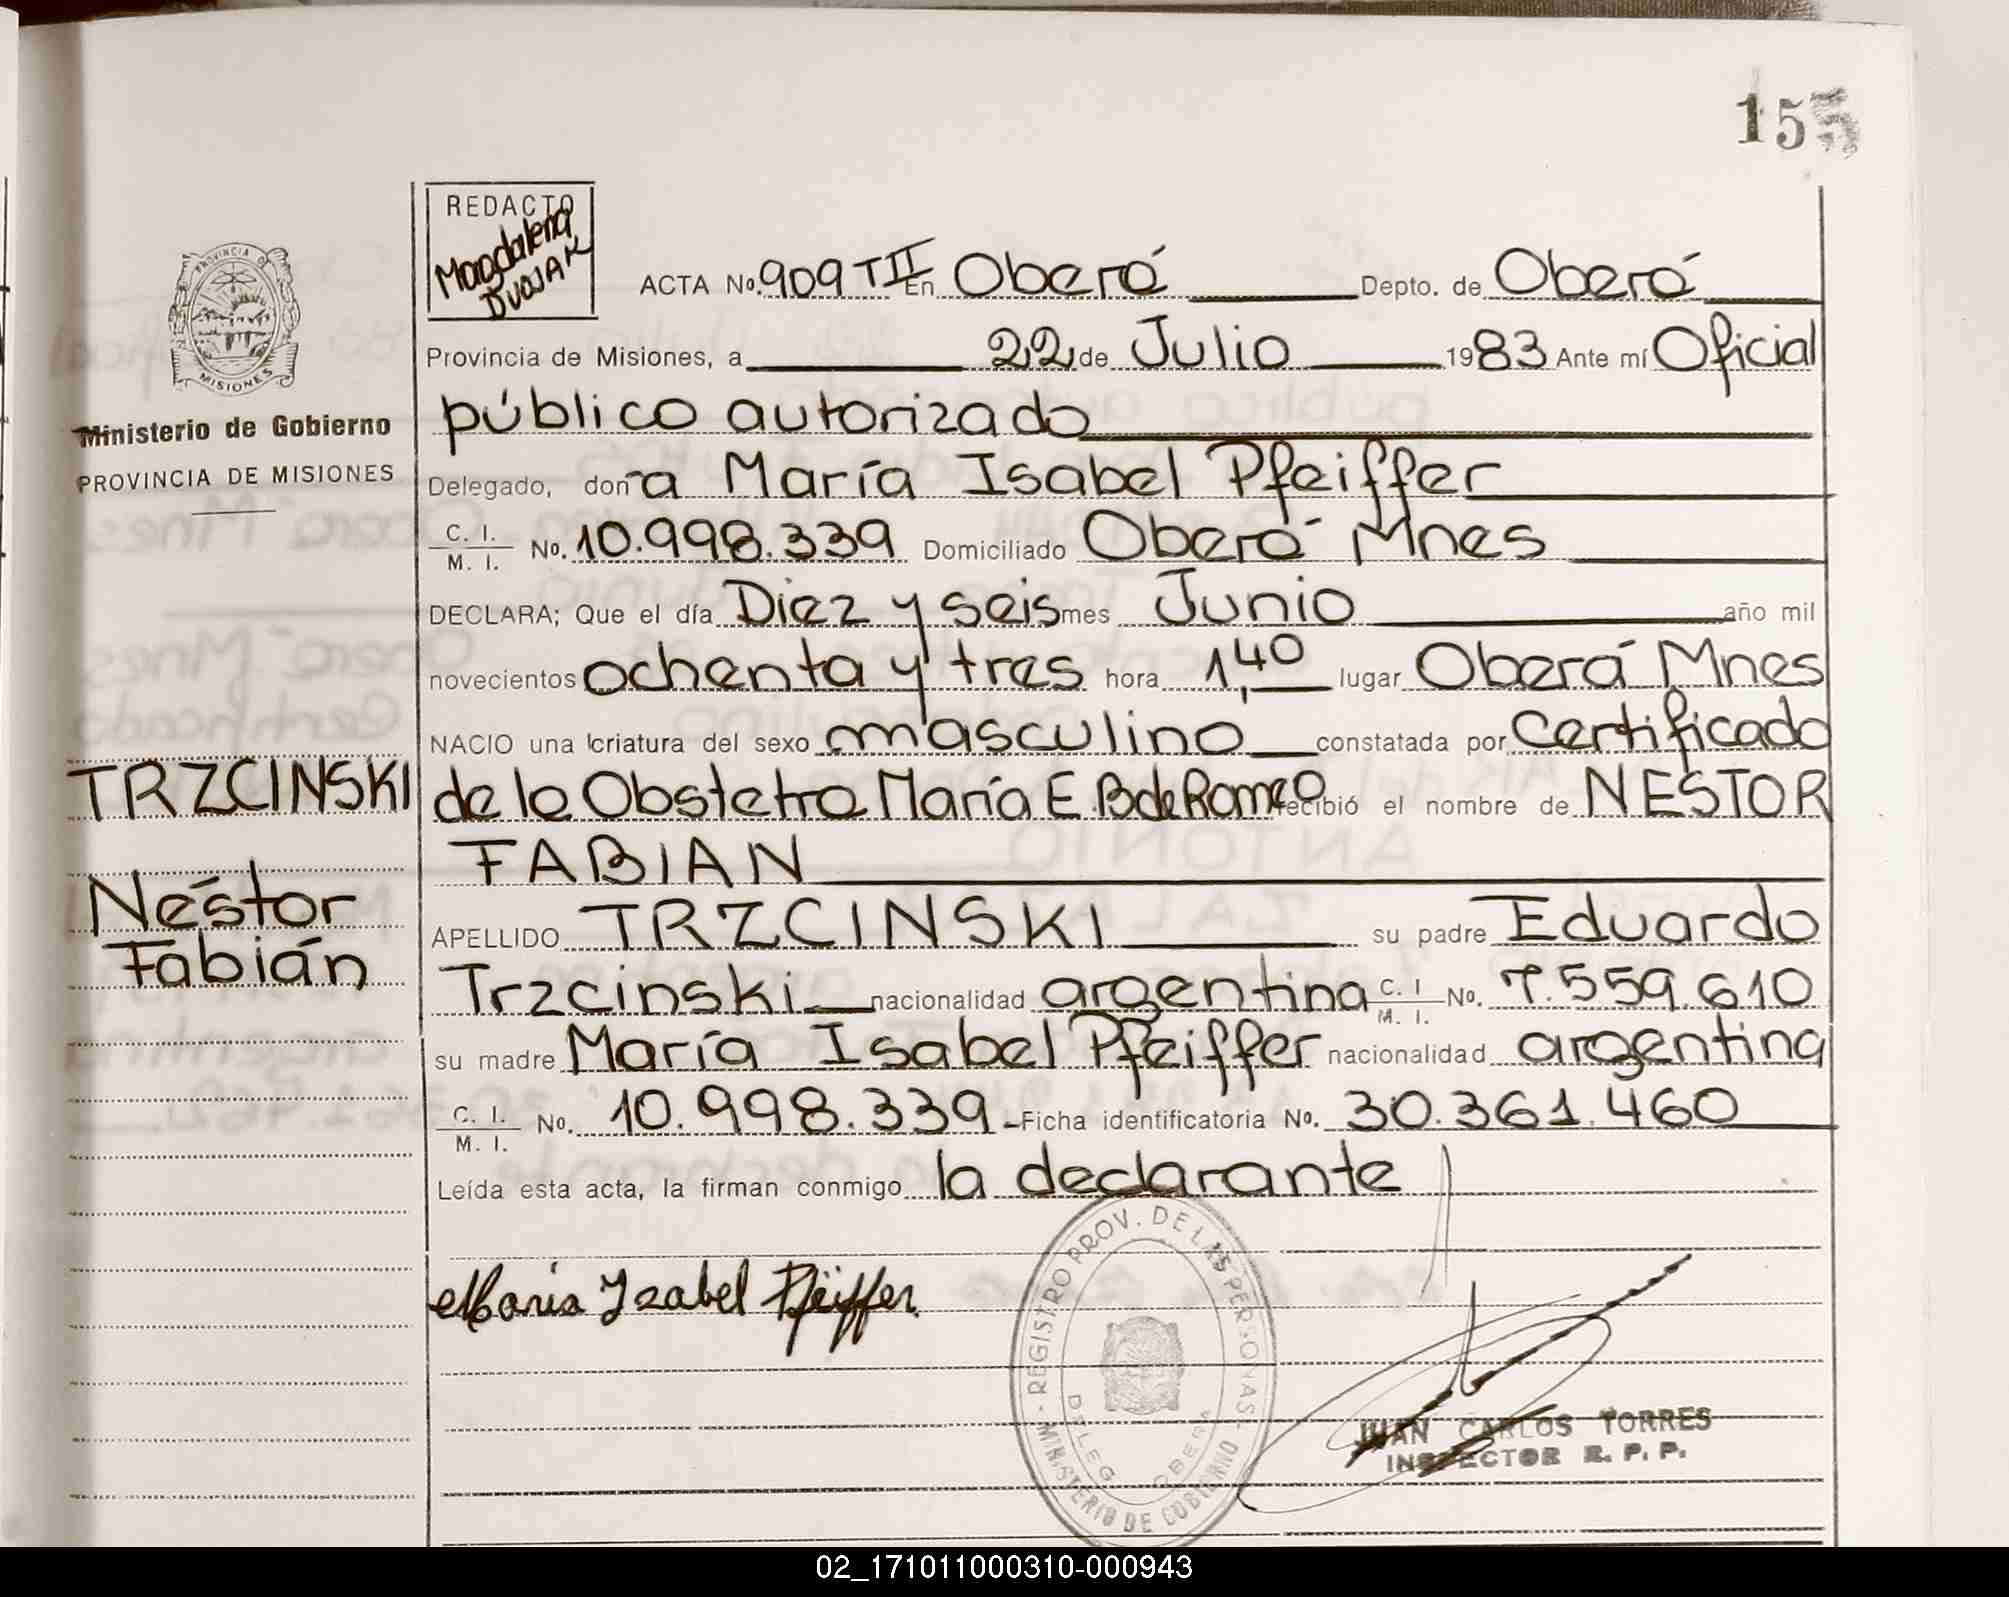 155
REDACTO
Magdalena
PROVINCIA DE
MISIONES
Ministerio de Gobierno
PROVINCIA DE MISIONES
ACTA No. 909 T II En Oberá Depto. de Oberá
Provincia de Misiones, a 22 de Julio 1983 Ante mí Oficial
público autorizado
Delegado, don a María Isabel Pfeiffer
C. I.
M. I. No. 10.998.339 Domiciliado Oberá Mnes
DECLARA; Que el día Diez y seis mes Junio año mil
novecientos ochenta y tres hora 1,40 lugar Oberá Mnes
NACIO una criatura del sexo masculino constatada por Certificado
de la Obstetra María E. B de Romeo recibió el nombre de NESTOR
FABIAN
TRZCINSKI
Néstor
Fabián
APELLIDO TRZCINSKI su padre Eduardo
Trzcinski nacionalidad argentina C. I. M. I. No. 7.559.610
su madre María Isabel Pfeiffer nacionalidad argentina
C. I.
M. I. No. 10.998.339 Ficha identificatoria No. 30.361.460
Leída esta acta, la firman conmigo la declarante
Maria Isabel Pfeiffer
REGISTRO PROV. DE LAS PERSONAS
MINISTERIO DE GOBIERNO
DELEG. OBERA
JUAN CARLOS TORRES
INSPECTOR R. P. P.
02_171011000310-000943